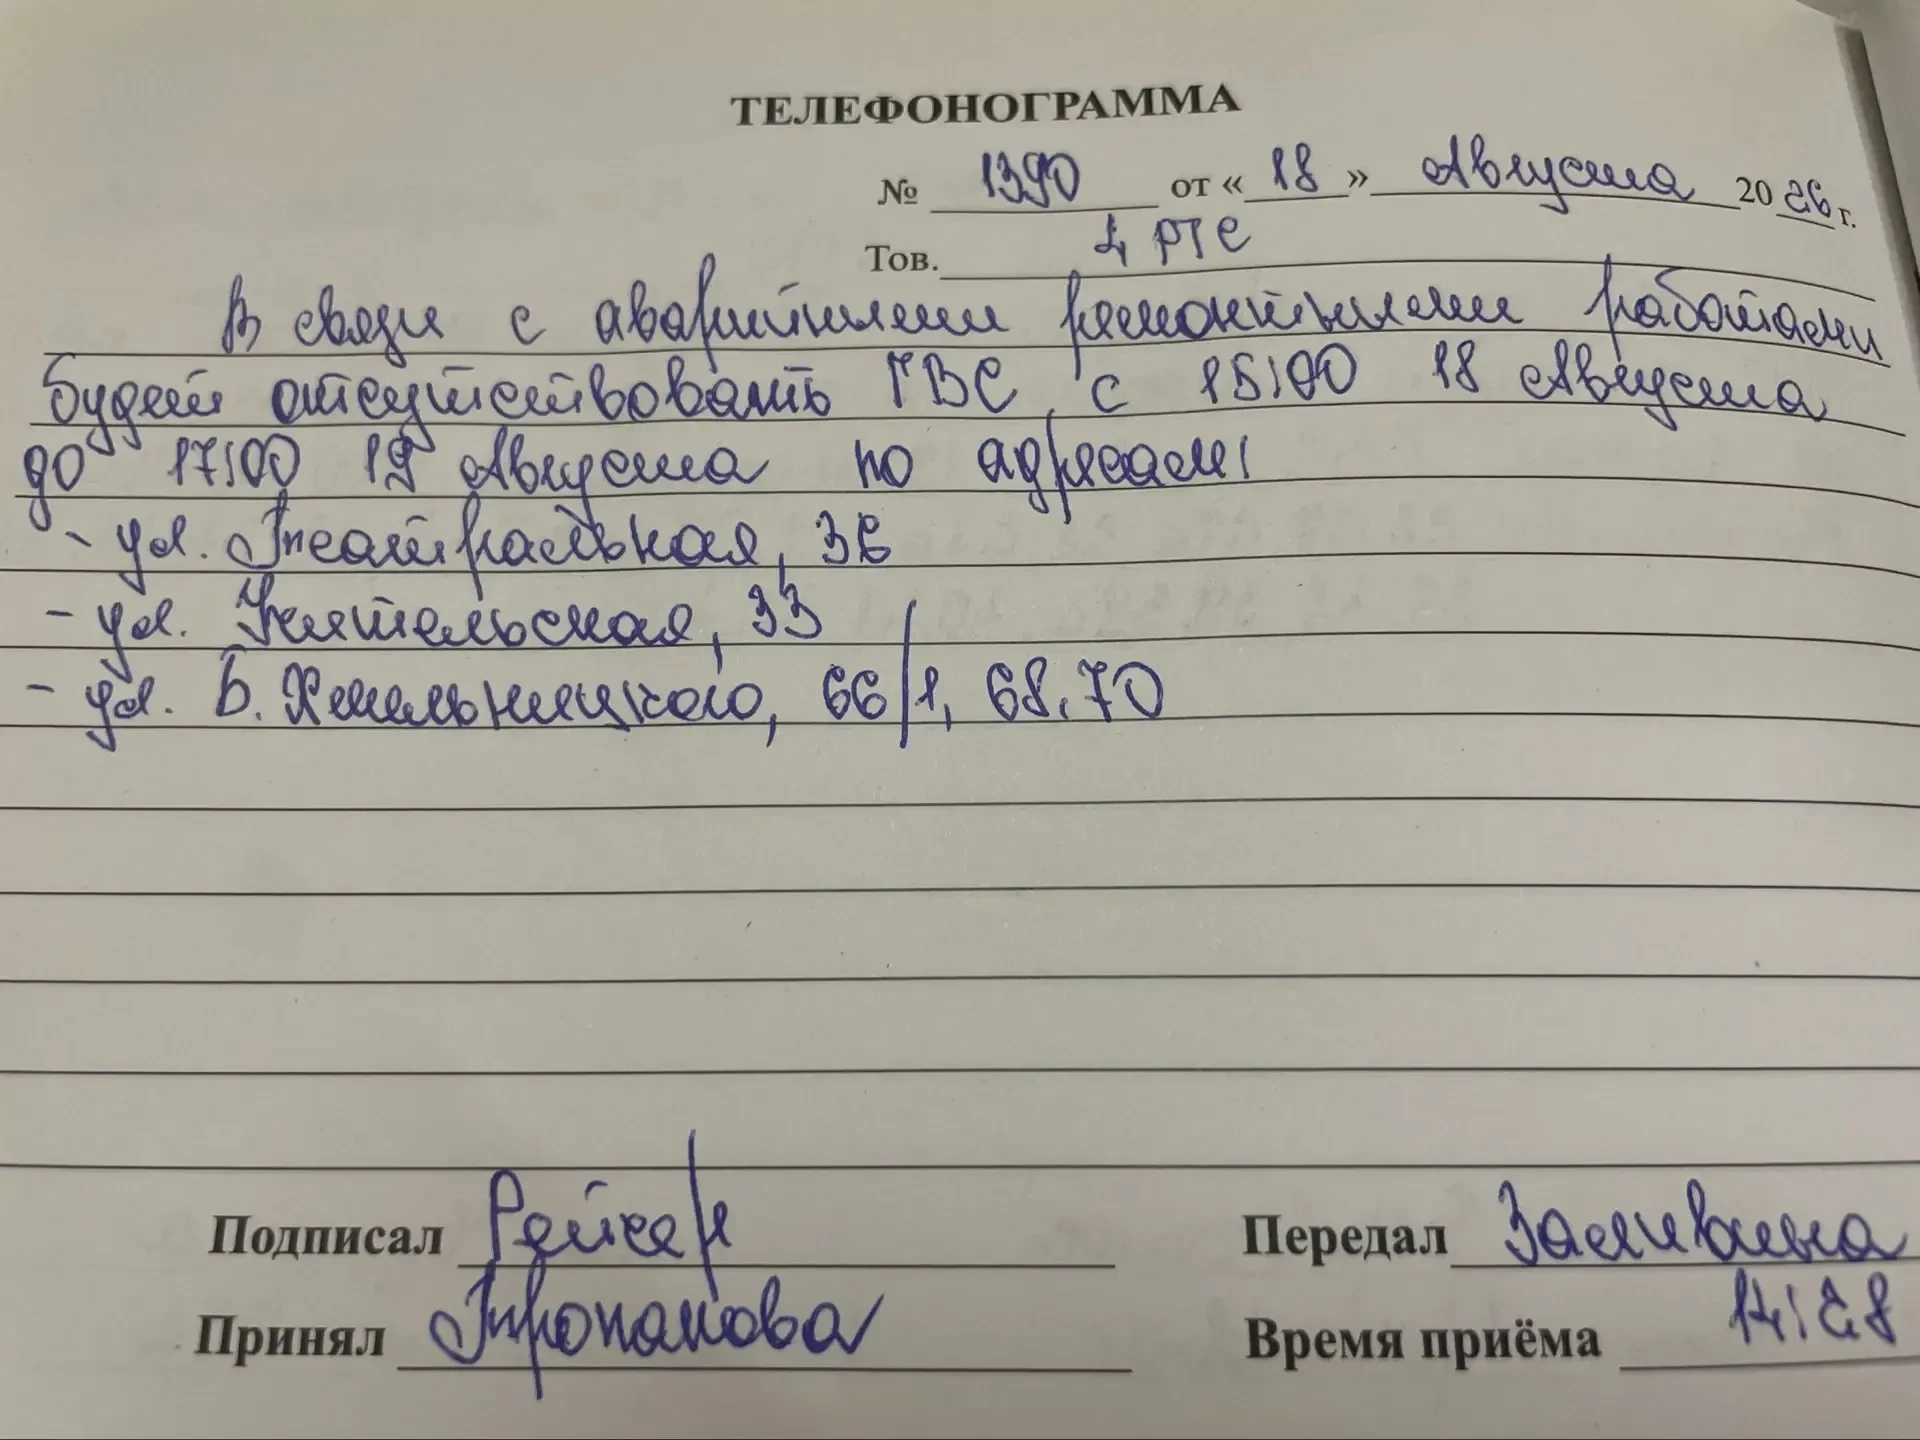 ТЕЛЕФОНОГРАММА
№ 1390 от « 18 » Августа 2026 г.
Тов. 4 РТС
В связи с аварийными ремонтными работами
будет отсутствовать ГВС с 15:00 18 Августа
до 17:00 19 Августа по адресам:
- ул. Театральная, 36
- ул. Учительская, 33
- ул. Б. Хмельницкого, 66/1, 68, 70
Подписал Рейсер Передал Заливина
Принял Тропакова Время приёма 14:28